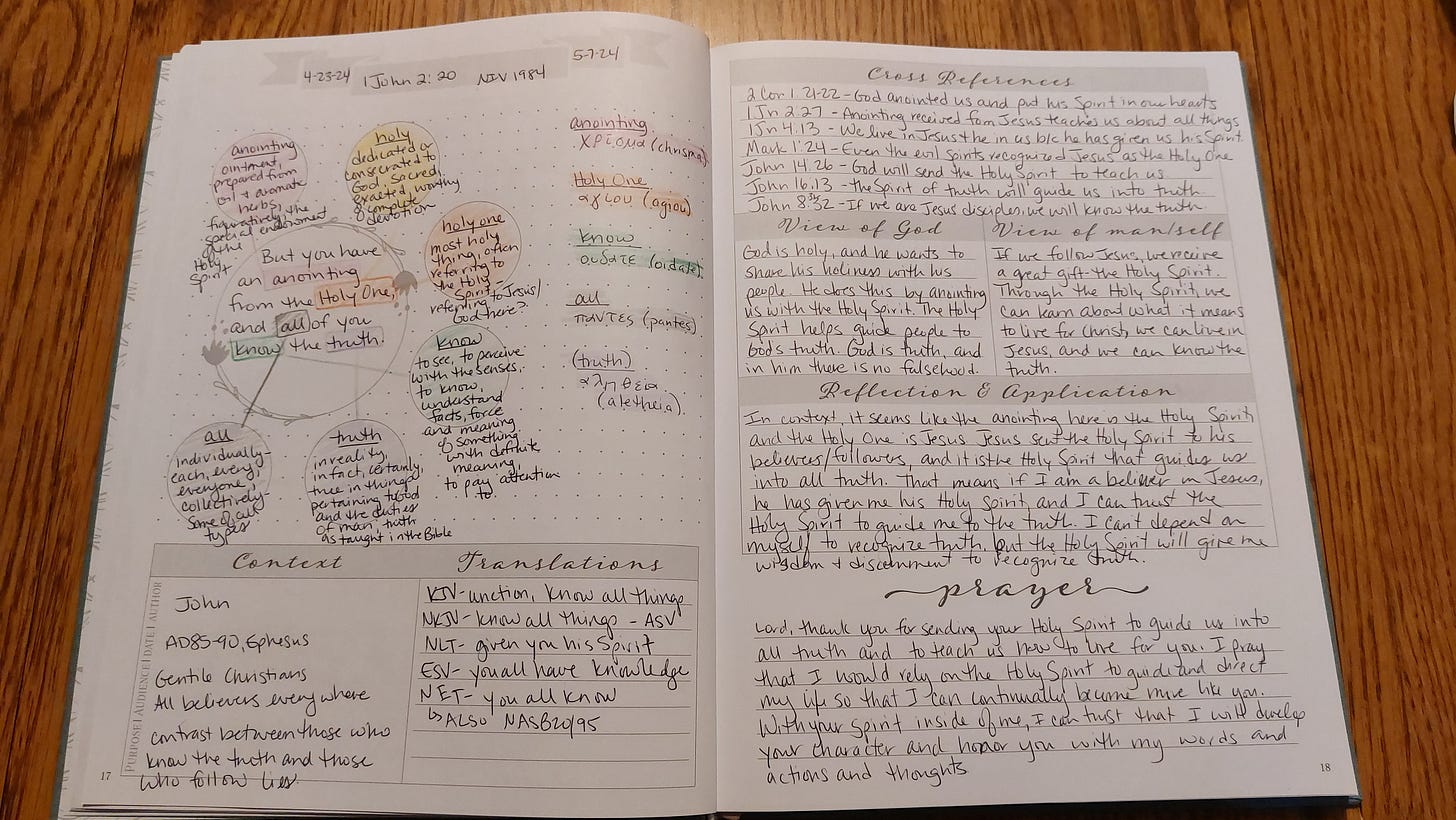 4-23-24
1 John 2:20
NIV 1984
5-7-24
anointing
ointment,
prepared from
oil + aromatic
herbs,
figuratively, the
special endowment
of the
Holy
Spirit
holy
dedicated or
consecrated to
God, sacred,
exalted, worthy
of complete
devotion
holy one
most holy
thing, often
referring to
the Holy
Spirit -
referring to Jesus/
God there?
But you have
an anointing
from the Holy One,
and all of you
know the truth.
know
to see, to perceive
with the senses,
to know,
understand
facts, force
and meaning
of something
with definite
meaning,
to pay attention
to
all
individually-
each, every,
everyone,
collectively-
some of all
types
truth
in reality,
in fact, certainly,
true in things
pertaining to God
and the duties
of man, truth
as taught in the Bible
anointing
χρίσμα (chrisma)
Holy One
αγίου (agiou)
know
οιδατε (oidate)
all
παντες (pantes)
(truth)
αληθεια
(aletheia)
Context
PURPOSE | AUDIENCE | DATE | AUTHOR
John
AD85-90, Ephesus
Gentile Christians
All believers everywhere
contrast between those who
know the truth and those
who follow lies.
Translations
KJV- unction, know all things
NKJV- know all things - ASV
NLT- given you his Spirit
ESV- you all have knowledge
NET- you all know
↳ ALSO NASB20/95
17
Cross References
2 Cor 1.21-22 - God anointed us and put his Spirit in our hearts
1 Jn 2:27 - Anointing received from Jesus teaches us about all things
1 Jn 4.13 - We live in Jesus + he in us b/c he has given us his Spirit.
Mark 1:24 - Even the evil spirits recognized Jesus as the Holy One
John 14.26 - God will send the Holy Spirit to teach us
John 16.13 - the Spirit of truth will guide us into truth
John 8:31-32 - If we are Jesus' disciples, we will know the truth
View of God
God is holy, and he wants to
share his holiness with his
people. He does this by anointing
us with the Holy Spirit. The Holy
Spirit helps guide people to
God's truth. God is truth, and
in him there is no falsehood.
View of man/self
If we follow Jesus, we receive
a great gift - the Holy Spirit.
Through the Holy Spirit, we
can learn about what it means
to live for Christ, we can live in
Jesus, and we can know the
truth.
Reflection & Application
In context, it seems like the anointing here is the Holy Spirit,
and the Holy One is Jesus. Jesus sent the Holy Spirit to his
believers/followers, and it is the Holy Spirit that guides us
into all truth. That means if I am a believer in Jesus,
he has given me his Holy Spirit, and I can trust the
Holy Spirit to guide me to the truth. I can't depend on
myself to recognize truth, but the Holy Spirit will give me
wisdom + discernment to recognize truth.
prayer
Lord, thank you for sending your Holy Spirit to guide us into
all truth and to teach us how to live for you. I pray
that I would rely on the Holy Spirit to guide and direct
my life so that I can continually become more like you.
With your Spirit inside of me, I can trust that I will develop
your character and honor you with my words and
actions and thoughts
18